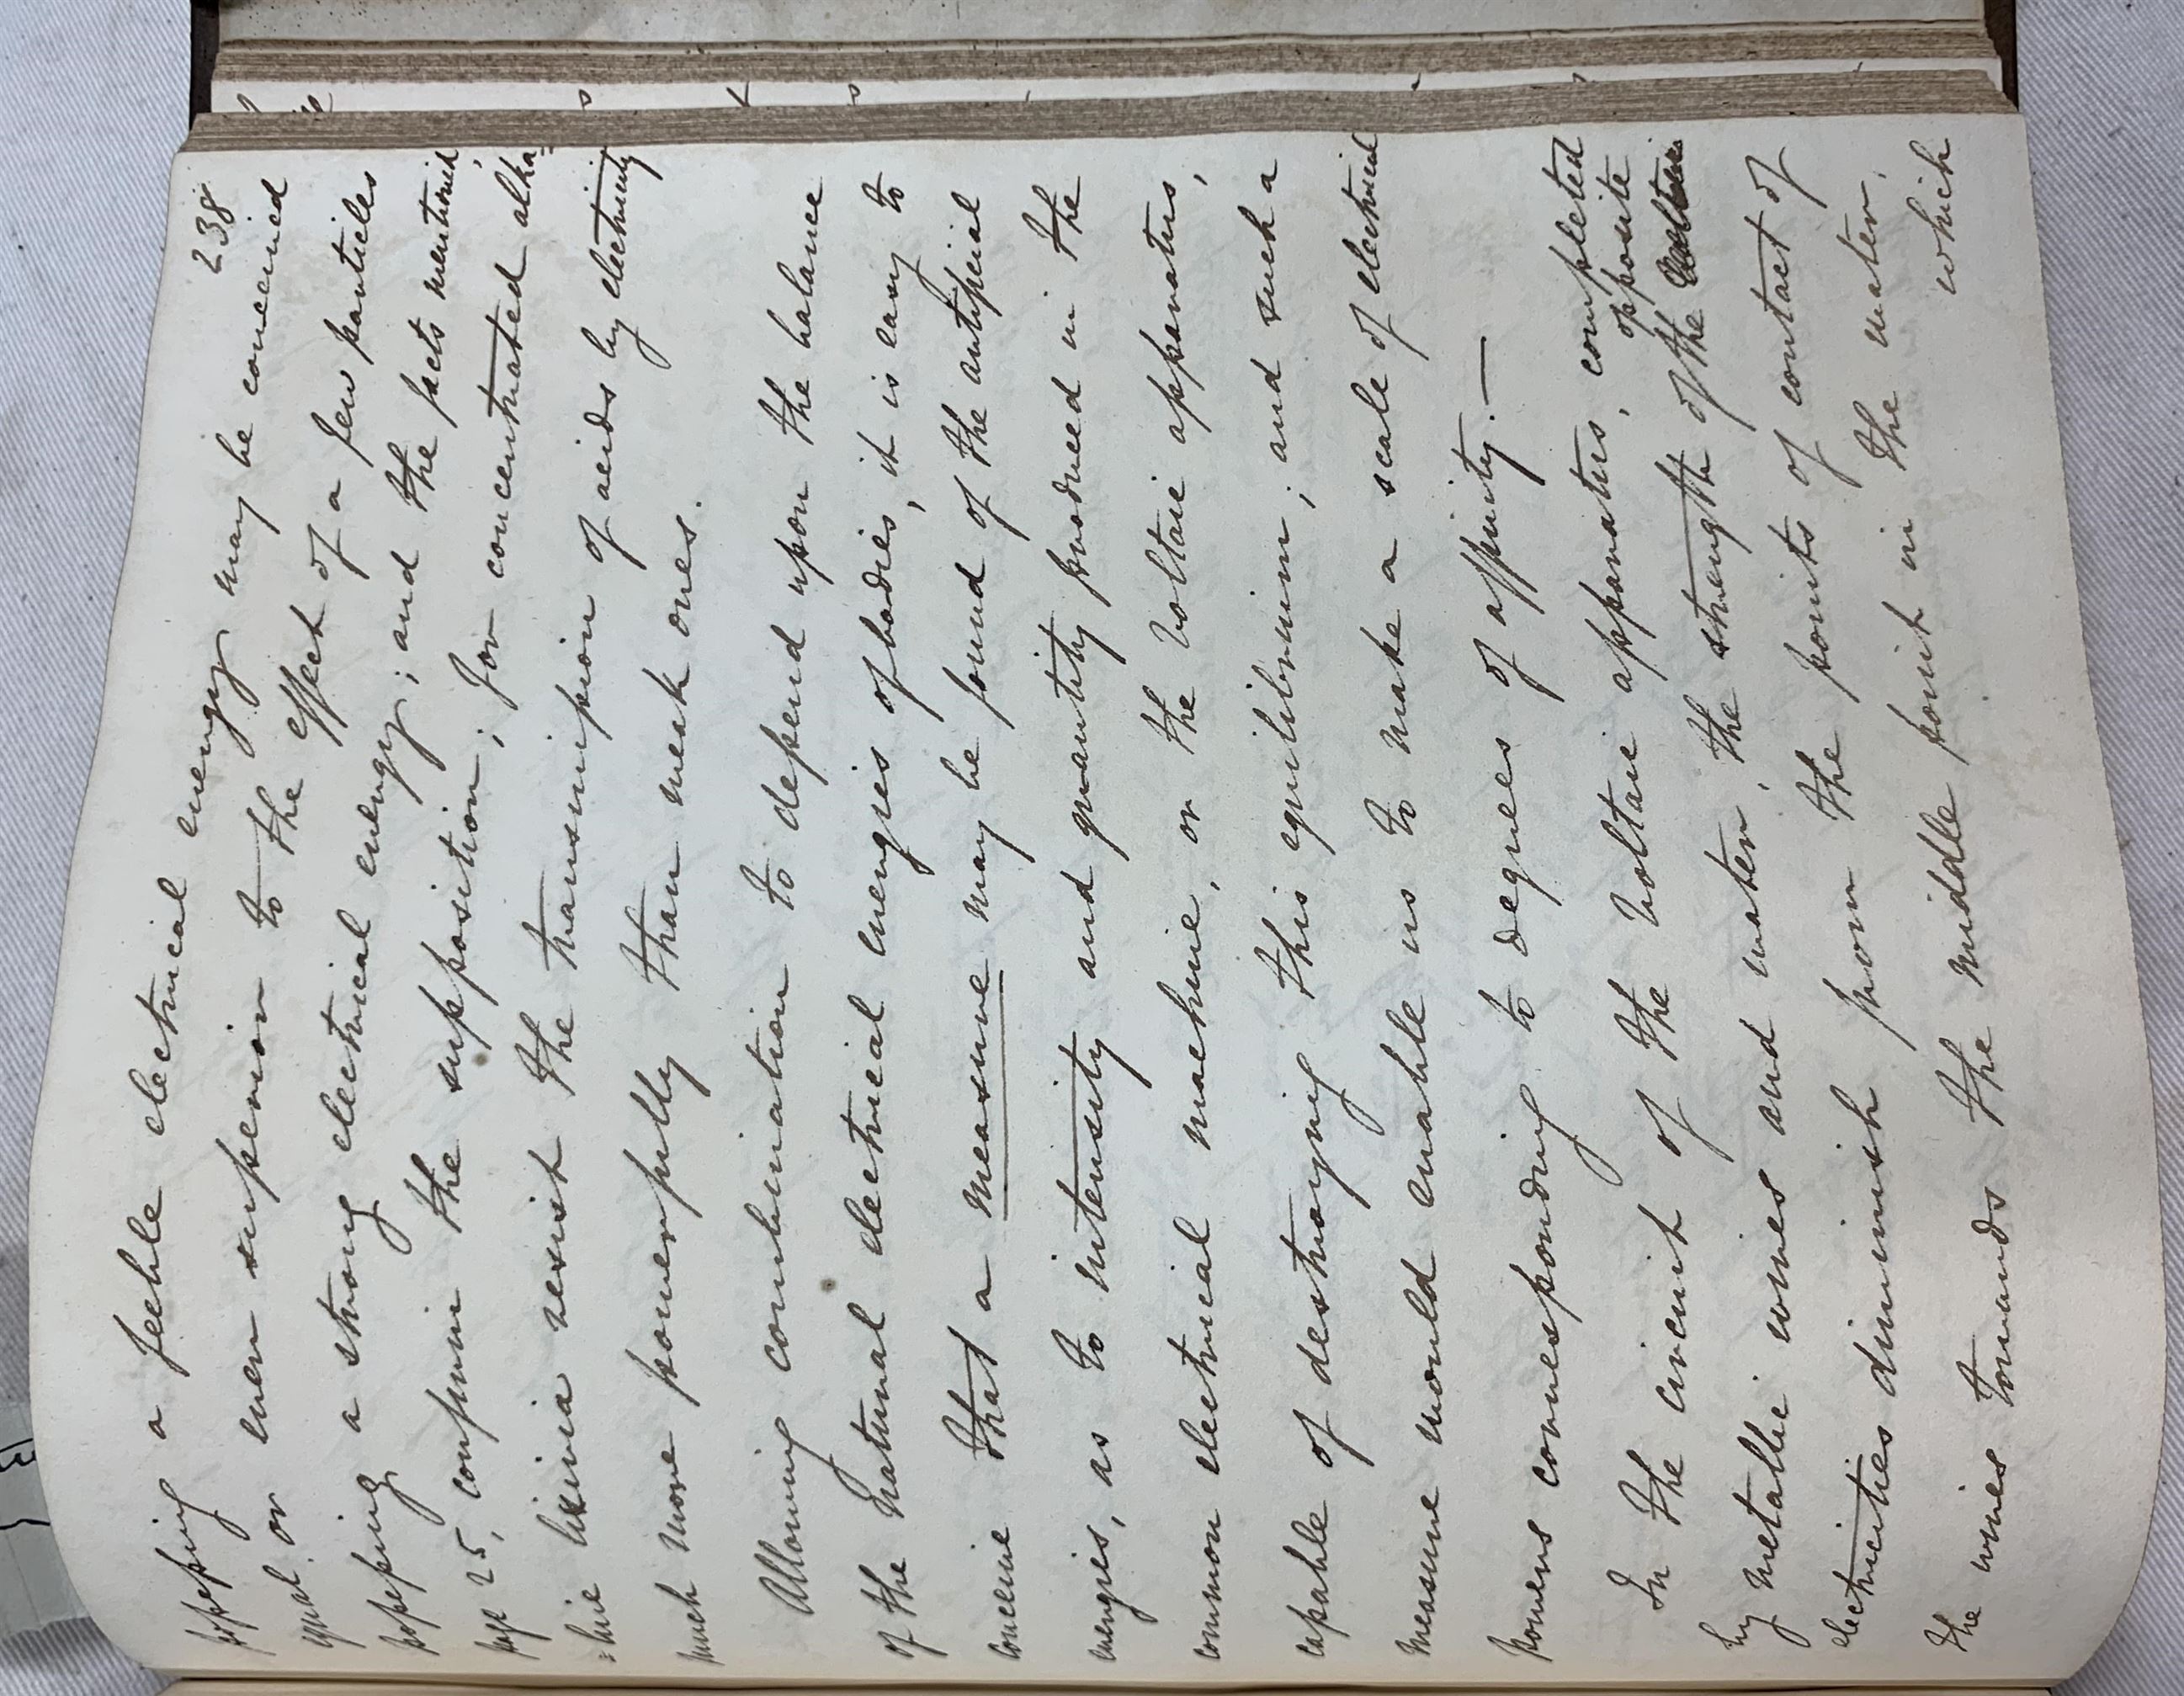 238
possessing a feeble electrical energy may be conceived
equal or even superior to the effect of a few particles
possessing a strong electrical energy; and the facts mentioned,
page 25, confirm the supposition; for concentrated alka=
=line lixivia resist the transmission of acids by electricity
much more powerfully than weak ones.
Allowing combination to depend upon the balance
of the natural electrical energies of bodies, it is easy to
conceive that a measure may be found of the artificial
energies, as to intensity and quantity produced in the
common electrical machine, or the Voltaic apparatus,
capable of destroying this equilibrium; and such a
measure would enable us to make a scale of electrical
powers corresponding to degrees of affinity.—
In the circuit of the Voltaic apparatus, completed
by metallic wires and water, the strength of the opposite
electricities diminish from the points of contact of
the wires towards the middle point in the water,
which